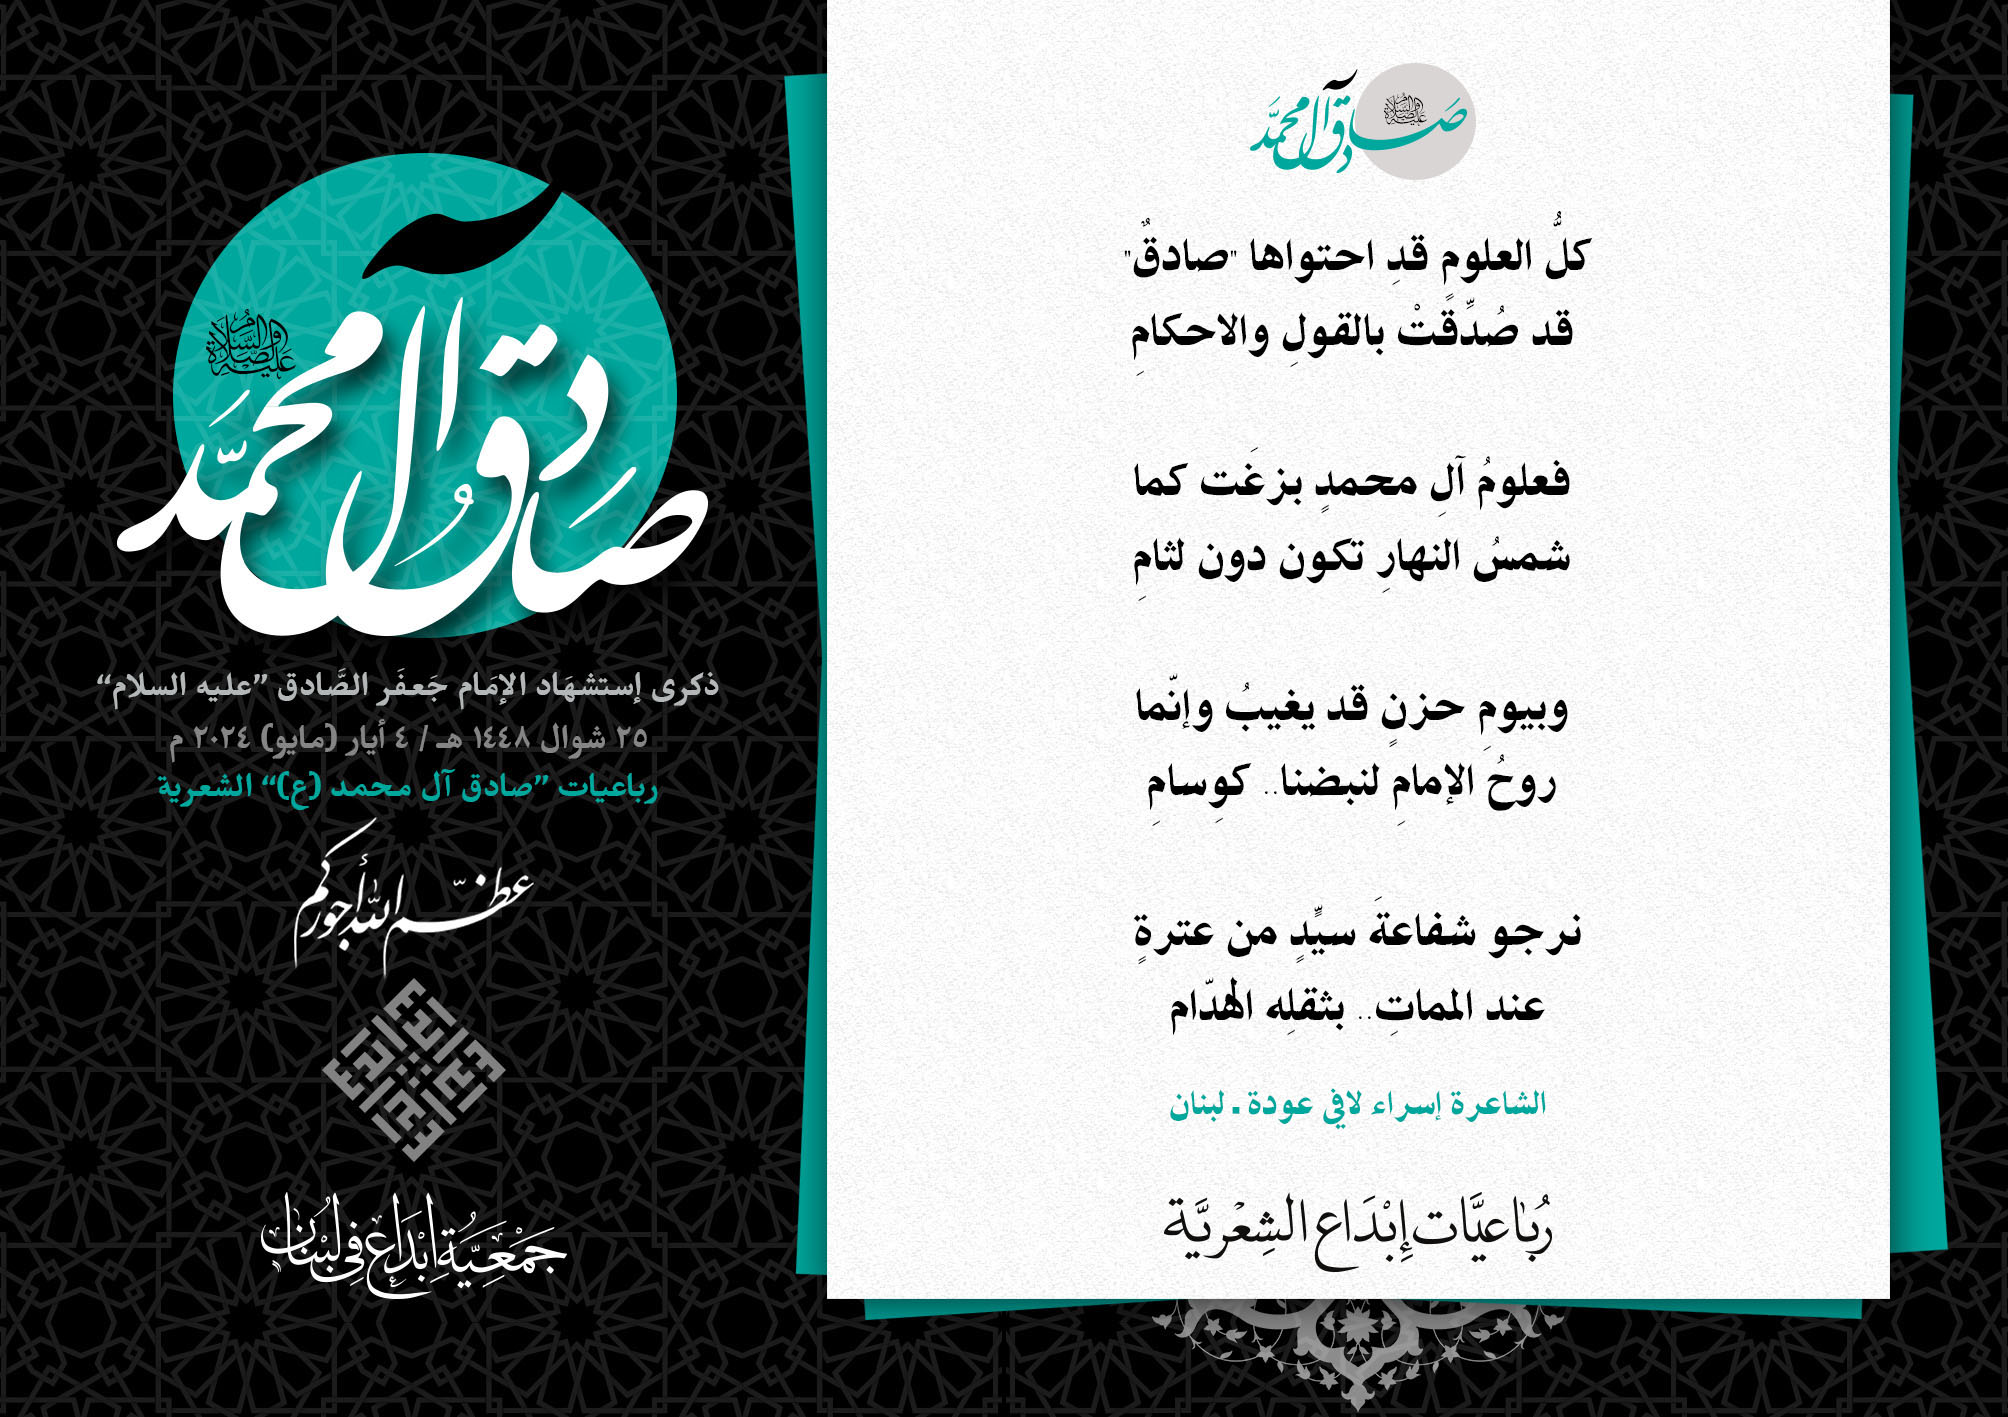 صادق آل محمد
عليه الصلاة والسلام
ذكرى إستشهَاد الإمَام جَعفَر الصَّادق ”عليه السلام“
٢٥ شوال ١٤٤٨ هـ / ٤ أيار (مايو) ٢٠٢٤ م
رباعيات ”صادق آل محمد (ع)“ الشعرية
عظّم الله أجوركم
جَمْعِيَّةُ إِبْدَاع فِي لُبْنَان
صادق آل محمد
عليه الصلاة والسلام
كلُّ العلومِ قدِ احتواها "صادقٌ"
قد صُدِّقَتْ بالقولِ والاحكامِ
فعلومُ آلِ محمدٍ بزغَت كما
شمسُ النهارِ تكون دون لثامِ
وبيومِ حزنٍ قد يغيبُ وإنّما
روحُ الإمامِ لنبضنا.. كوِسامِ
نرجو شفاعةَ سيِّدٍ من عترةٍ
عند المماتِ.. بثقلِه الهدّام
الشاعرة إسراء لافي عودة ـ لبنان
رُبَاعيَّات إِبْدَاع الشِعْريَّة